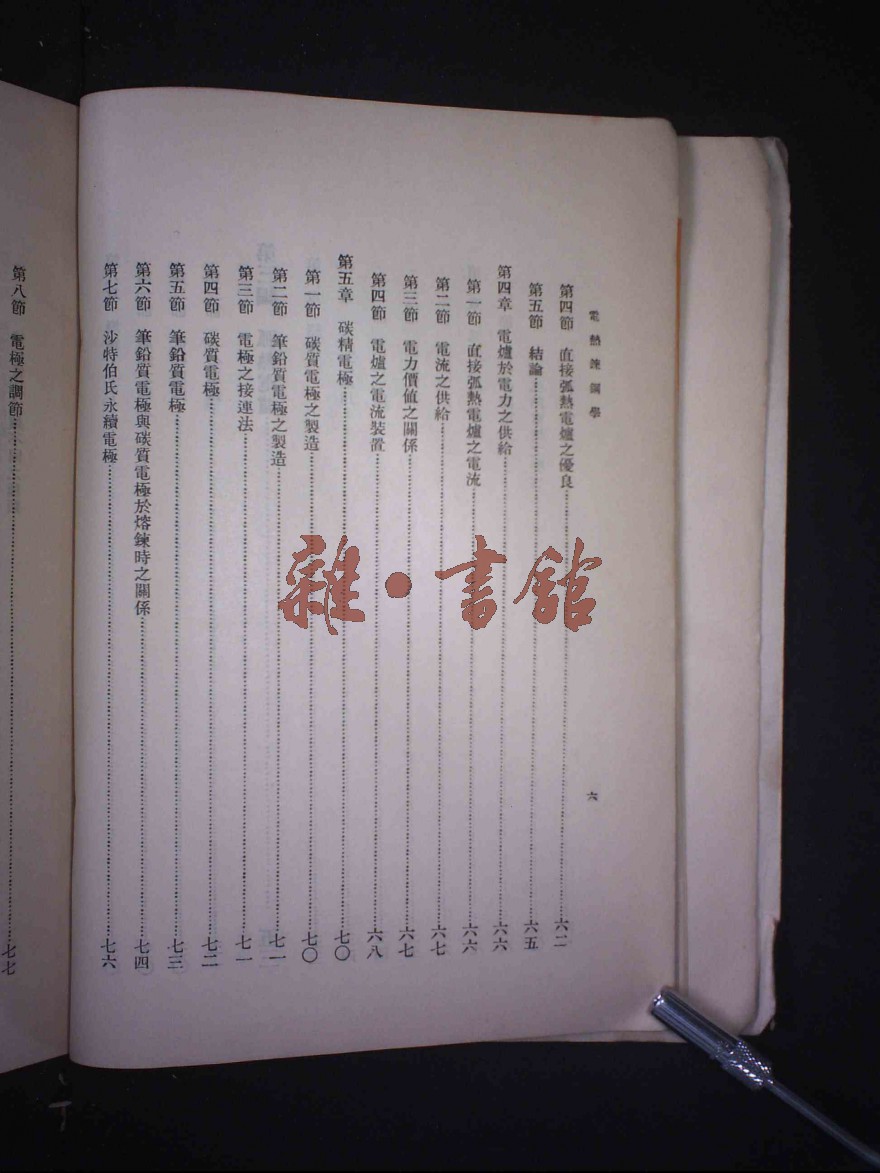 電熱鍊鋼學
六
第四節 直接弧熱電爐之優良……六二
第五節 結論……六五
第四章 電爐於電力之供給……六六
第一節 直接弧熱電爐之電流……六六
第二節 電流之供給……六七
第三節 電力價值之關係……六七
第四節 電爐之電流裝置……六八
第五章 碳精電極……七〇
第一節 碳質電極之製造……七〇
第二節 筆鉛質電極之製造……七一
第三節 電極之接連法……七一
第四節 碳質電極……七二
第五節 筆鉛質電極……七三
第六節 筆鉛質電極與碳質電極於熔鍊時之關係……七四
第七節 沙特伯氏永續電極……七六
第八節 電極之調節……七七
雜·書館